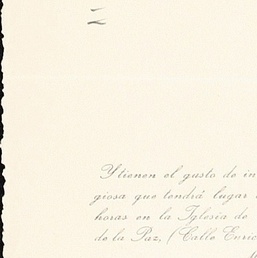 Y tienen el gusto de in
giosa que tendrá lugar
horas en la Iglesia de
de la Paz, (Calle Enric